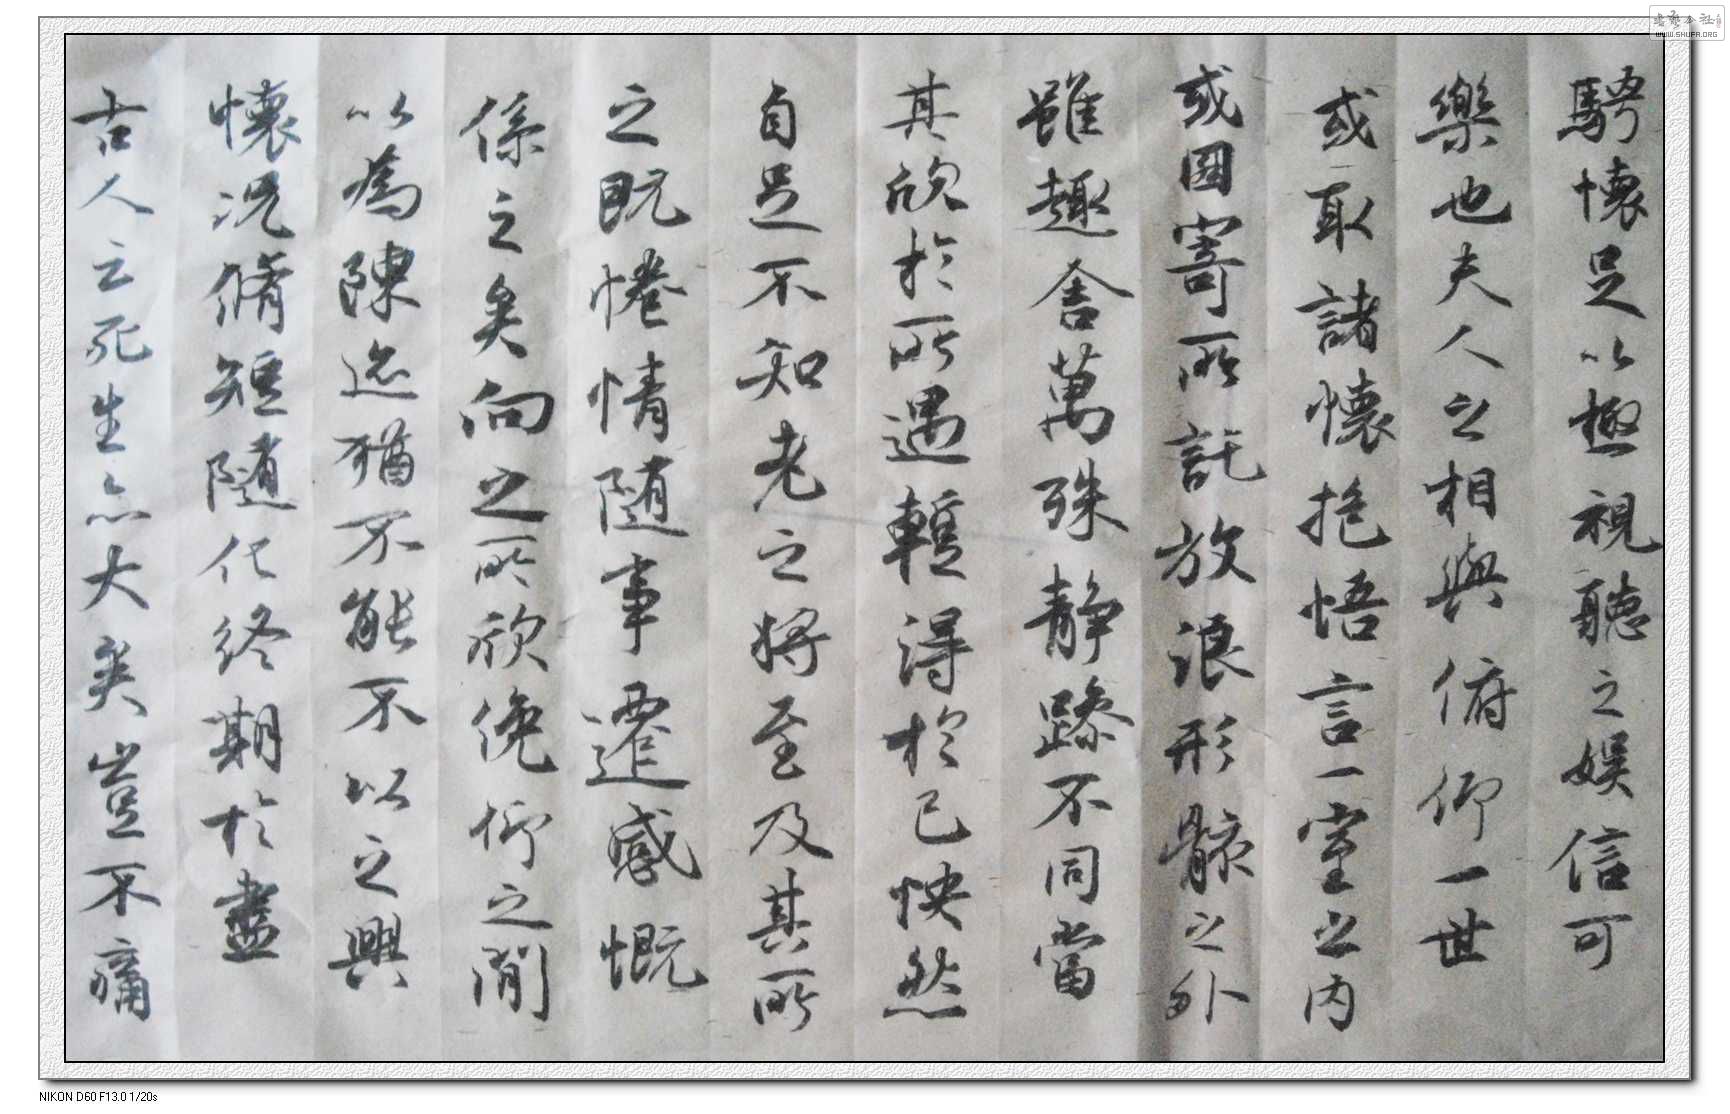 騁懷足以極視聽之娱信可
樂也夫人之相與俯仰一世
或取諸懷抱悟言一室之内
或因寄所託放浪形骸之外
雖趣舎萬殊静躁不同當
其欣於所遇蹔得於己怏然
自足不知老之將至及其所
之既惓情随事遷感慨
係之矣向之所欣俛仰之閒
以為陳迹猶不能不以之興
懷況脩短隨化終期於盡
古人云死生亦大矣豈不痛
書藝公社
WWW.SHUFA.ORG
NIKON D60 F13.0 1/20s